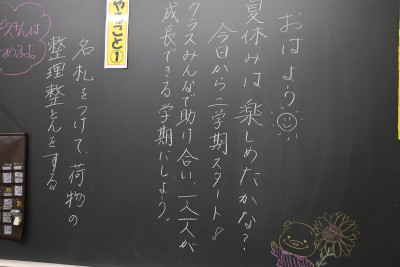 おはよう
夏休みは楽しめたかな?
今日から二学期スタート!
クラスみんなで助け合い、一人一人が
成長できる学期にしよう。
やること①
名札をつけて、荷物の
整理整とんをする